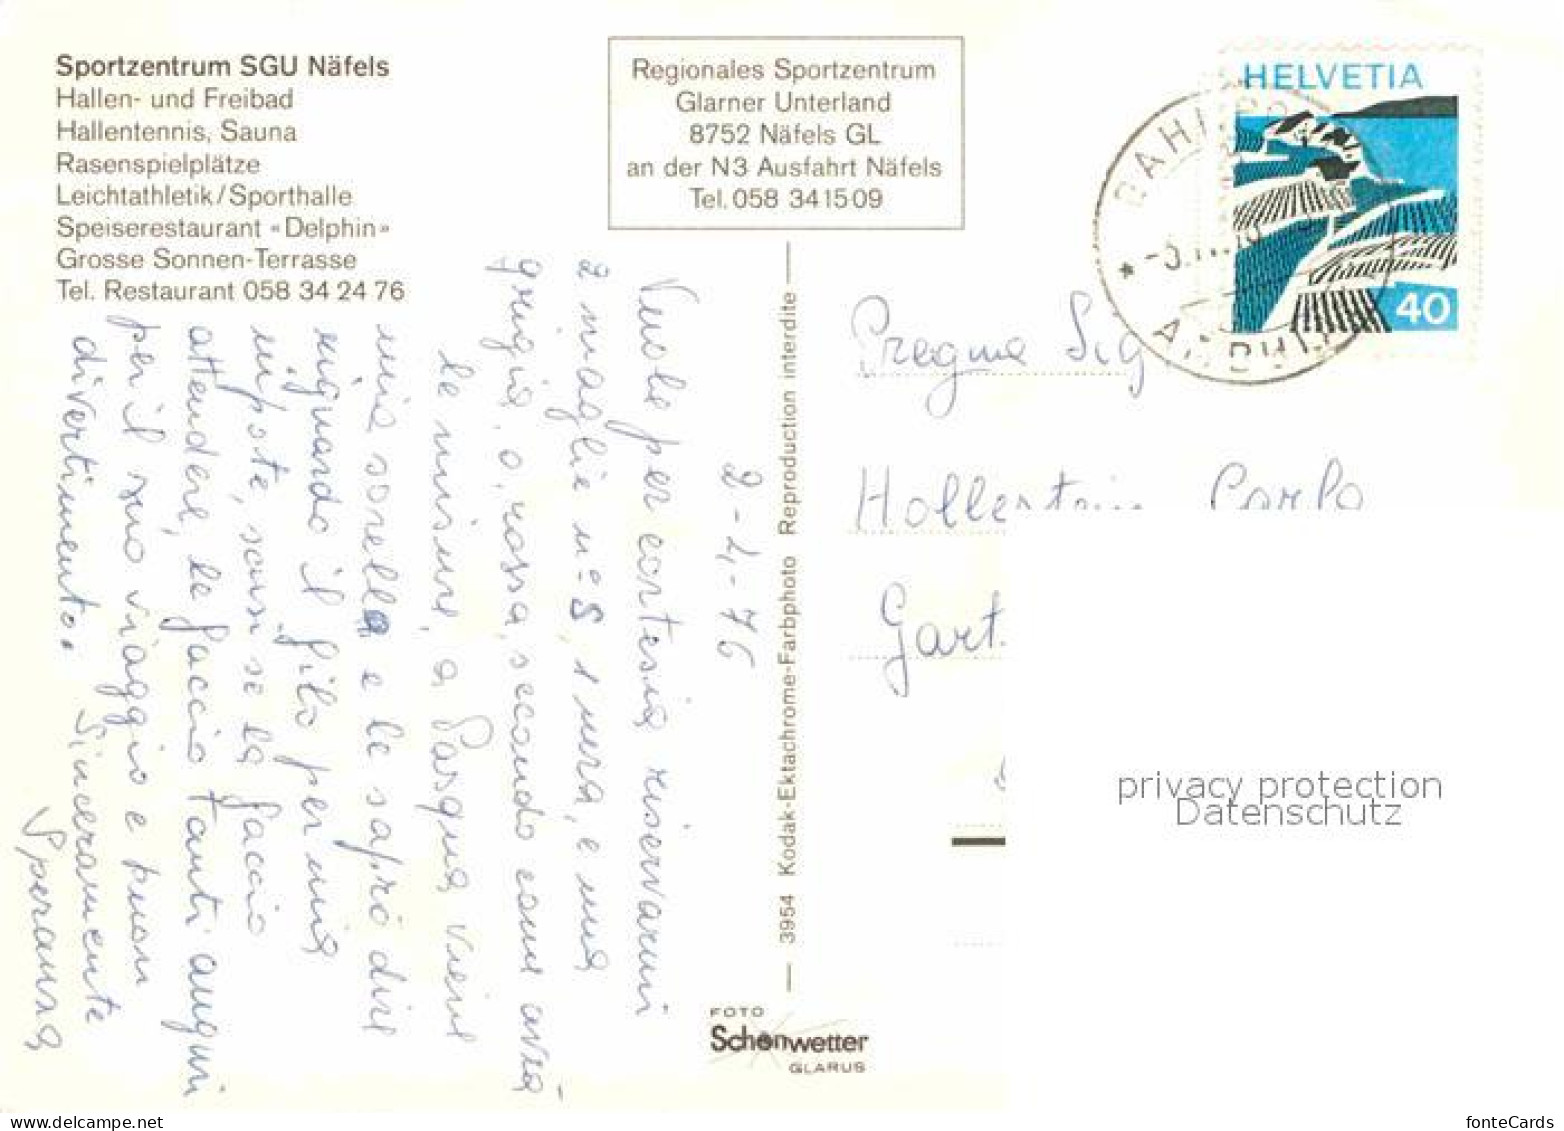 Sportzentrum SGU Näfels
Hallen- und Freibad
Hallentennis, Sauna
Rasenspielplätze
Leichtathletik/Sporthalle
Speiserestaurant «Delphin»
Grosse Sonnen-Terrasse
Tel. Restaurant 058 34 24 76
Regionales Sportzentrum
Glarner Unterland
8752 Näfels GL
an der N3 Ausfahrt Näfels
Tel. 058 34 15 09
HELVETIA
40
2-4-76
Vuole per cortesia riservarmi
2 maglie n° 5, 1 nera, e una
grigia, o, rossa, secondo come avrà
le misure, a Pasqua viene
mia sorella e le saprò dire
riguardo il filo per mia
nipote, scusi se la faccio
attendere, le faccio tanti auguri
per il suo viaggio e buon
divertimento. Sinceramente
Speranza
3954 Kodak-Ektachrome-Farbphoto Reproduction interdite
FOTO
Schönwetter
GLARUS
Pregma Sig
Hollenstein Carlo
Gart
privacy protection
Datenschutz
www.delcampe.net
fonteCards